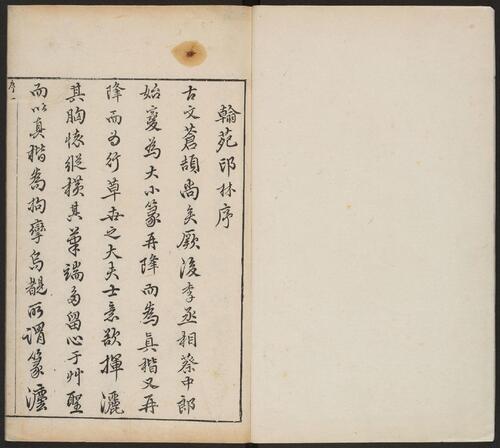 翰苑印林序
古文蒼頡尚矣厥後李丞相蔡中郎
始變為大小篆再降而為真楷又再
降而為行草世之大夫士意欲揮灑
其胸懷縱橫其筆端多留心于艸聖
而以真楷為拘攣烏覩所謂篆
序一